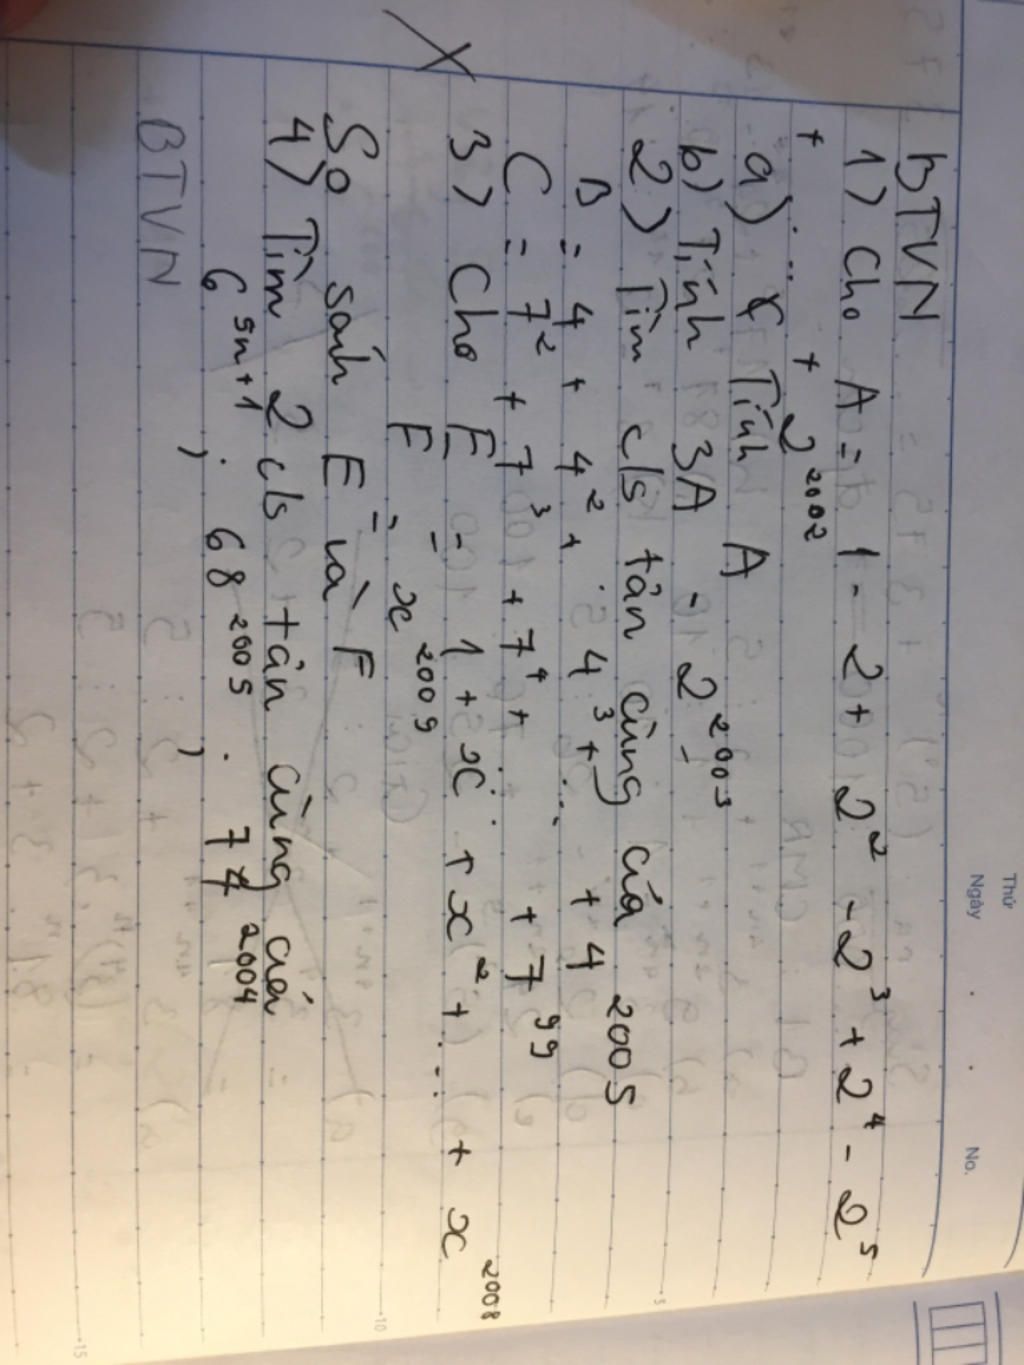 Thứ
Ngày
No.
BTVN
1) Cho A = 1 - 2 + 2² - 2³ + 2⁴ - 2⁵
+ ... + 2²⁰⁰²
a) Tính A
b) Tính 3A - 2²⁰⁰³
2) Tìm c/s tận cùng của
B = 4 + 4² + 4³ + ... + 4²⁰⁰⁵
C = 7² + 7³ + 7⁴ + ... + 7⁹⁹
3) Cho E = 1 + x + x² + ... + x²⁰⁰⁸
F = x²⁰⁰⁹
So sánh E và F
4) Tìm 2 c/s tận cùng của
6⁵ⁿ⁺¹ ; 68²⁰⁰⁵ ; 74²⁰⁰⁴
BTVN
5
10
15